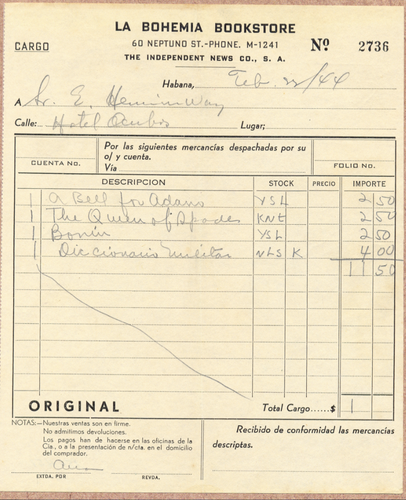 LA BOHEMIA BOOKSTORE
CARGO 60 NEPTUNO ST.-PHONE. M-1241 Nº 2736
THE INDEPENDENT NEWS CO., S. A.
Habana, Feb. 22/44
A Sr. E. Hemingway
Calle: Hotel Lugar;
CUENTA No. Por las siguientes mercancias despachadas por su FOLIO No.
o/ y cuenta.
Vía
DESCRIPCION STOCK PRECIO IMPORTE
1 A Bell for Adano YSL 2 50
1 The Queen of Spades KNE 2 50
1 YSL 2 50
1 Diccionario Militar NLS K 4 00
11 50
ORIGINAL Total Cargo......$ 1
NOTAS:—Nuestras ventas son en firme.
No admitimos devoluciones.
Los pagos han de hacerse en las oficinas de la
Cía., o a la presentación de n/cta. en el domicilio
del comprador.
Recibido de conformidad las mercancías
descriptas.
EXTDA. POR REVDA.